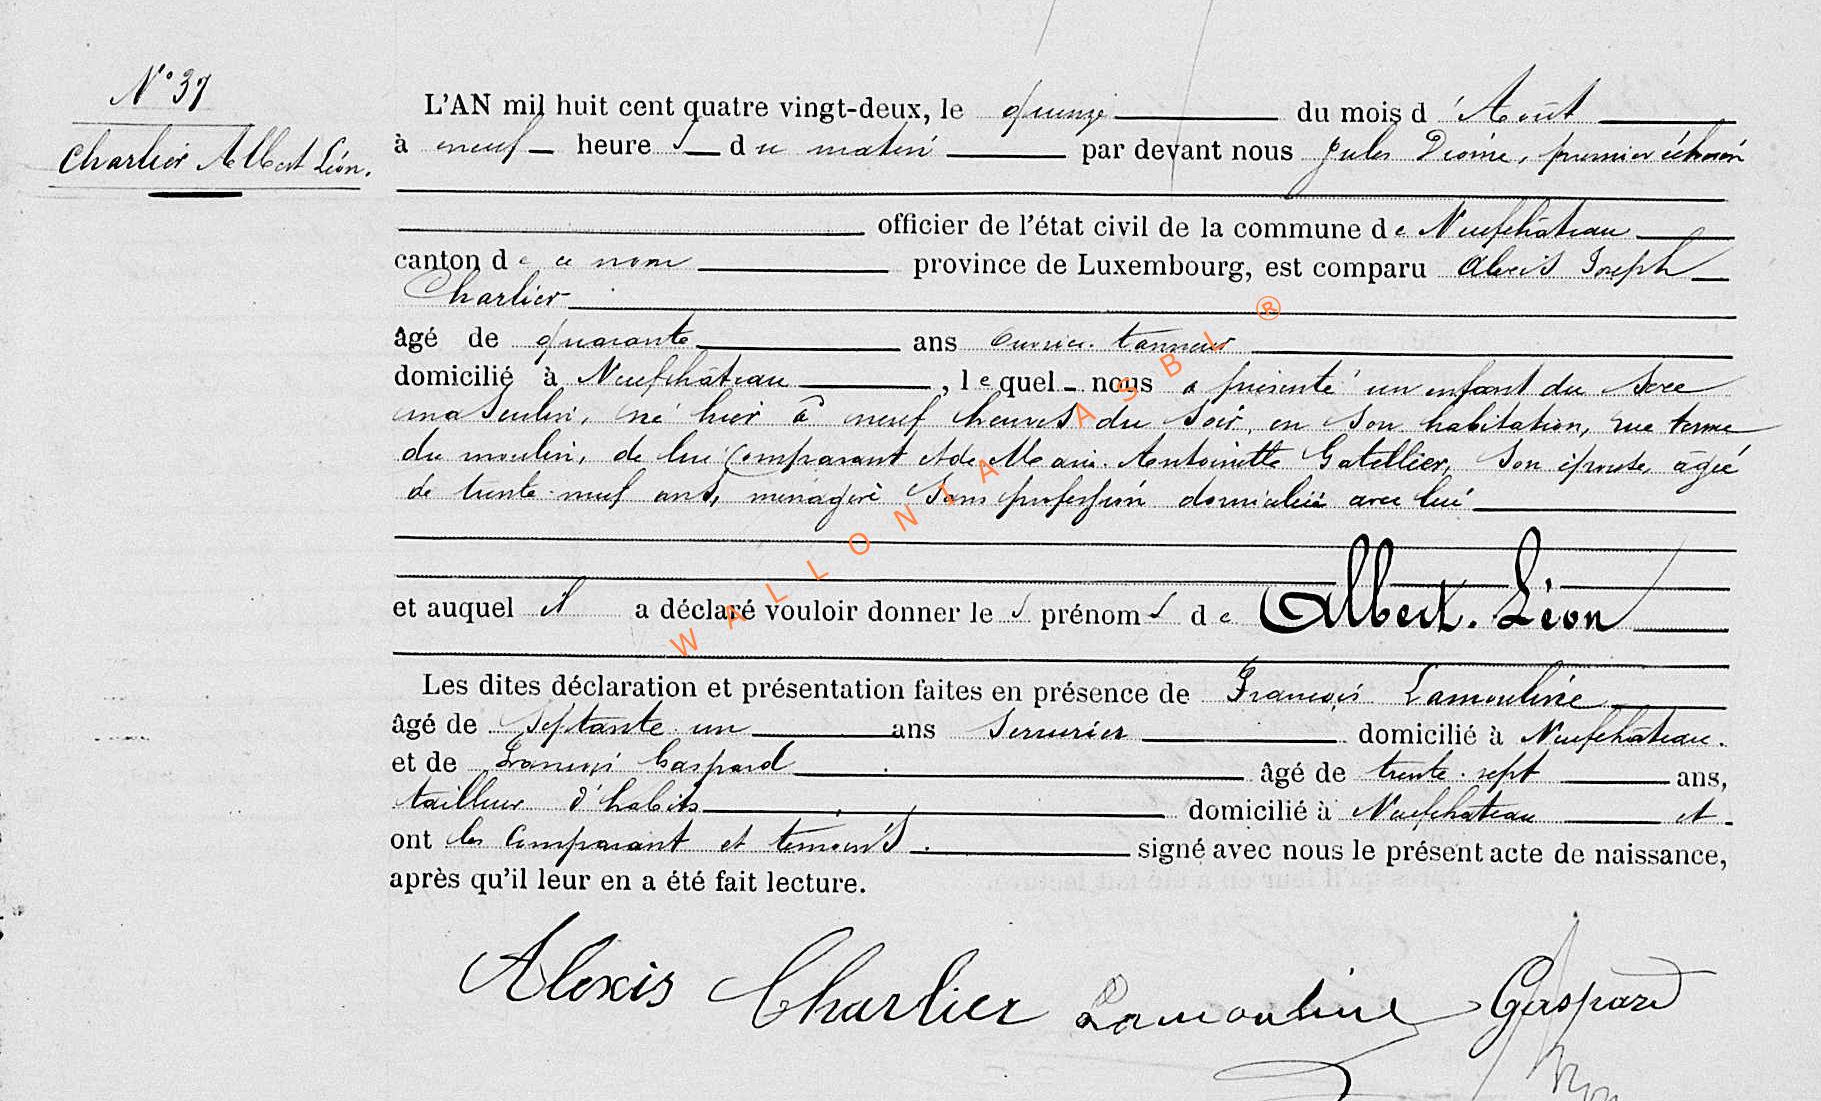 N° 37
Charlier Albert Léon.
L'AN mil huit cent quatre vingt-deux, le quinze du mois d'Août
à neuf heure s du matin par devant nous Jules premier échevin
officier de l'état civil de la commune de Neufchâteau
canton de ce nom province de Luxembourg, est comparu Alexis Joseph
Charlier
âgé de quarante ans ouvrier tanneur
domicilié à Neufchâteau, lequel nous a présenté un enfant du sexe
masculin, né hier à neuf heures du soir, en son habitation, rue terme
du moulin, de lui comparant et de Marie Antoinette Gatellier, son épouse âgée
de trente-neuf ans, ménagère sans profession domiciliée avec lui
et auquel il a déclaré vouloir donner les prénoms de Albert. Léon
Les dites déclaration et présentation faites en présence de François Lamouline
âgé de septante un ans serrurier domicilié à Neufchâteau.
et de François Gaspard âgé de trente-sept ans,
tailleur d'habits domicilié à Neufchateau et
ont les comparant et témoins. signé avec nous le présent acte de naissance,
après qu'il leur en a été fait lecture.
Alexis Charlier Lamouline Gaspard
WALLONIA ASBL ®